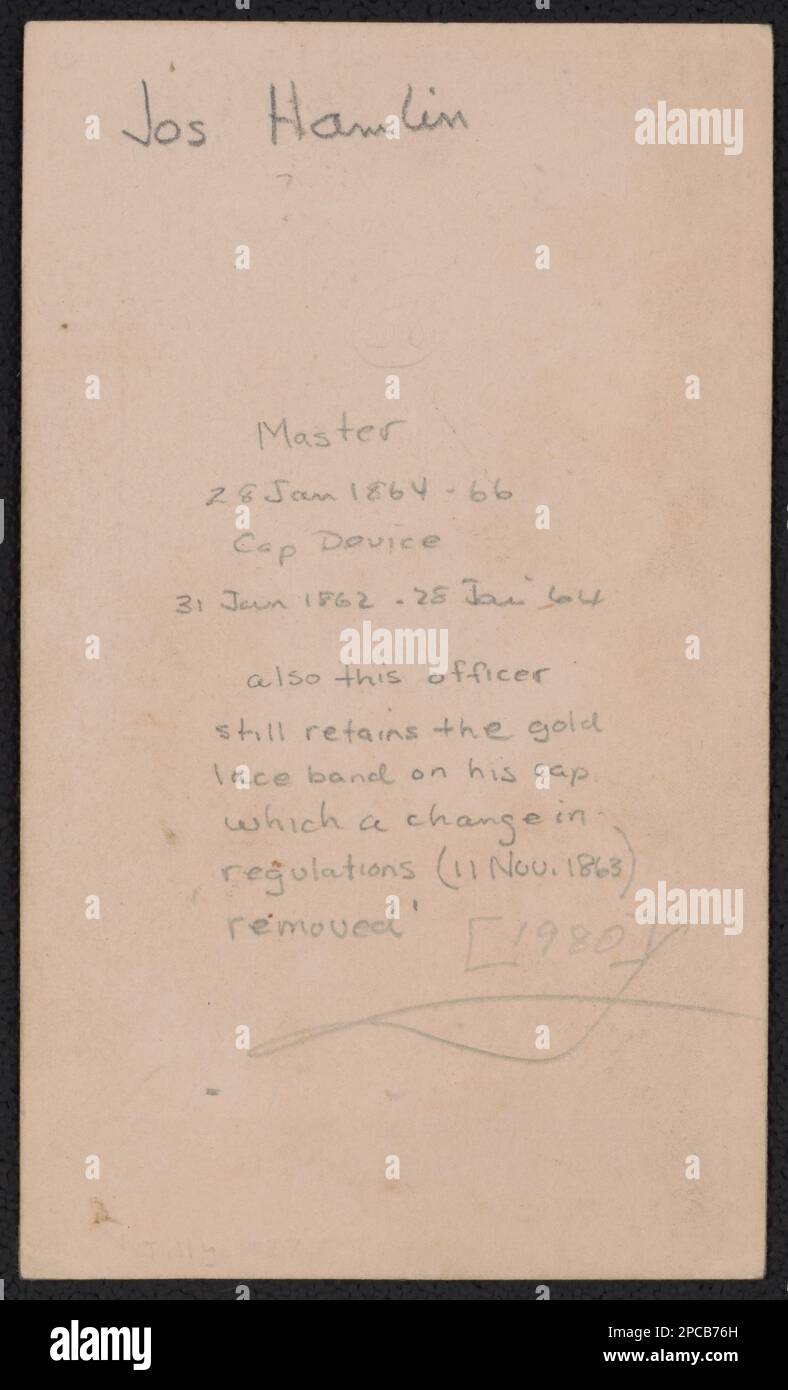 Jos Hamlin
Master
28 Jan 1864 - 66
Cap Device
31 Jan 1862 - 28 Jan 64
also this officer
still retains the gold
lace band on his cap
which a change in
regulations (11 Nov. 1863)
removed'
[1980]
alamy
alamy
alamy
alamy
Image ID: 2PCB76H
www.alamy.com